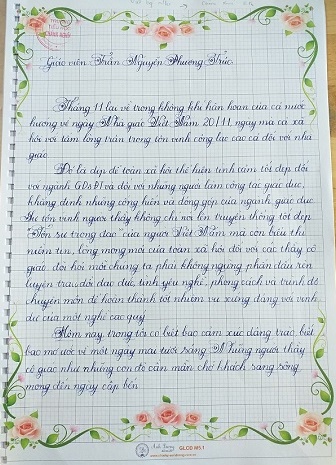 Giáo viên Trần Nguyễn Phương Trúc
Tháng 11 lại về trong không khí hân hoan của cả nước
hướng về ngày Nhà giáo Việt Nam 20/11 ngày mà cả xã
hội với tấm lòng trân trọng tôn vinh công lao cao cả đối với nhà
giáo
Đó là dịp để toàn xã hội thể hiện tình cảm tốt đẹp đối
với ngành GD&ĐT và đối với những người làm công tác giáo dục,
khẳng định những cống hiến và đóng góp của ngành giáo dục
Sự tôn vinh người thầy không chỉ nói lên truyền thống tốt đẹp
"Tôn sư trọng đạo" của người Việt Nam mà còn biểu thị
niềm tin, lòng mong mỏi của toàn xã hội đối với các thầy cô
giáo, đòi hỏi mỗi chúng ta phải không ngừng phấn đấu rèn
luyện trau dồi đạo đức, tình yêu nghề, phong cách và trình độ
chuyên môn để hoàn thành tốt nhiệm vụ xứng đáng với vinh
dự của một nghề cao quý
Hôm nay, trong tôi có biết bao cảm xúc dâng trào, biết
bao mơ ước về một ngày mai tươi sáng. Những người thầy
cô giáo như những con đò cần mẫn chở khách sang sông
mong đến ngày cập bến
Anh Dương
GLOD MS 1